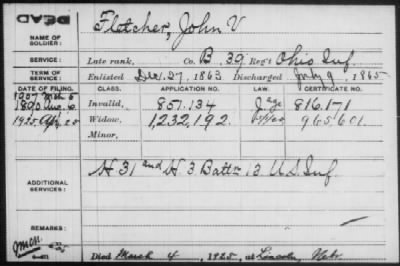 DEAD
Fletcher, John V
NAME OF SOLDIER:
SERVICE: Late rank, Co. B, 39 Reg't Ohio Inf.
TERM OF SERVICE: Enlisted Dec. 27, 1863 Discharged July 9, 1865
DATE OF FILING. CLASS. APPLICATION NO. LAW. CERTIFICATE NO.
1907
1890 Aug. 6 Invalid, 857.134 age 816.171
1925 Apr. 28 Widow, 1,232,192. 965601.
Minor,
H 31 and H 3 Batt'n 13 U.S. Inf.
ADDITIONAL SERVICES:
REMARKS:
Died March 4, 1925, at Lincoln, Nebr